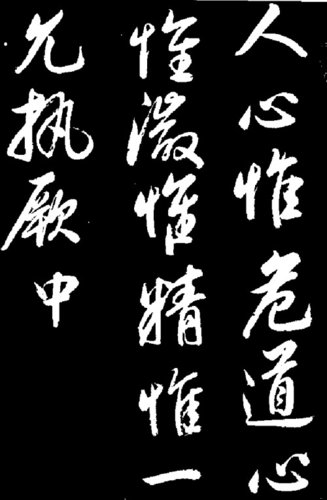 人心惟危道心
惟微惟精惟一
允執厥中